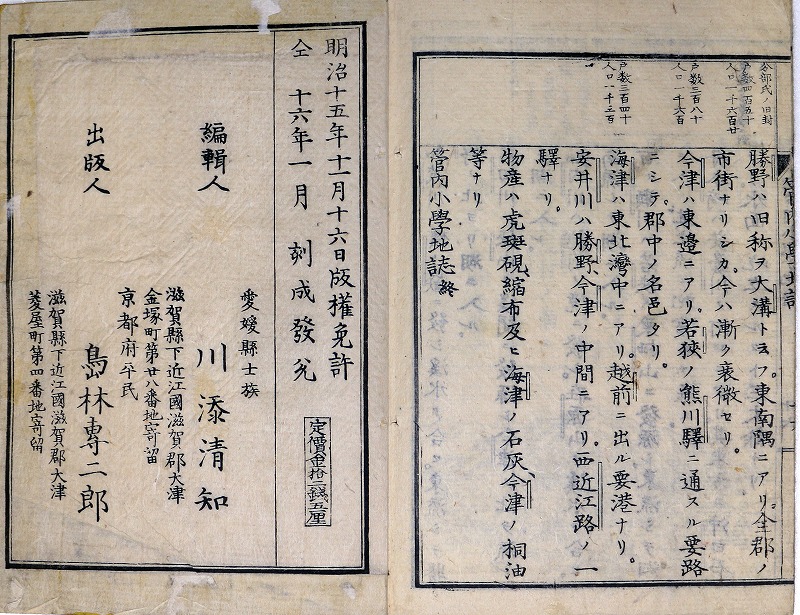 分部氏ノ旧封
戸数四百五十
人口一千六百廿
戸数三百八十
人口一千六百
戸数三百四十
人口一千三百
勝野ハ旧称ヲ大溝トヨフ東南隅ニアリ仝郡ノ
市街ナリシカ今ハ漸ク衰微セリ。
今津ハ東邉ニアリ若狹ノ熊川驛ニ通スル要路
ニシテ郡中ノ名邑タリ。
海津ハ東北灣中ニアリ越前ニ出ル要港ナリ。
安井川ハ勝野今津ノ中間ニアリ西近江路ノ一
驛ナリ。
物産ハ虎斑硯縮布及ヒ海津ノ石灰今津ノ桐油
等ナリ
管内小學地誌終
管内小學地誌
明治十五年十一月十六日版權免許
仝 十六年一月 刻成發兌
定價金拾二錢五厘
愛媛縣士族
編輯人 川添清知
滋賀縣下近江國滋賀郡大津
金塚町第廿八番地寄留
京都府平民
出版人 島林專二郎
滋賀縣下近江國滋賀郡大津
菱屋町第四番地寄留